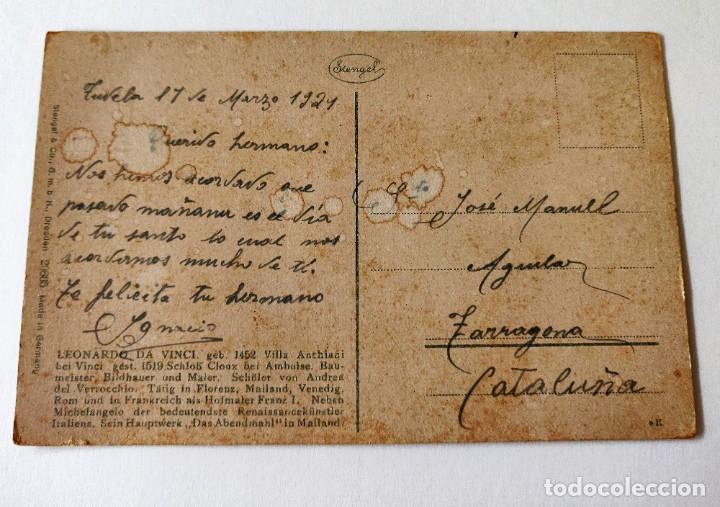 Stengel
Tudela 17 de Marzo 1921
Querido hermano:
Nos hemos acordado que
pasado mañana es el día
de tu santo lo cual nos
acordemos mucho de tí.
Te felicita tu hermano
Ignacio
José Manuel
Aguilar
Tarragona
Cataluña
LEONARDO DA VINCI. geb. 1452 Villa Anchiaci
bei Vinci gest. 1519 Schloß Cloux bei Amboise. Bau-
meister, Bildhauer und Maler. Schüler von Andrea
del Verrocchio. Tätig in Florenz, Mailand, Venedig,
Rom und in Frankreich als Hofmaler Franz I. Neben
Michelangelo der bedeutendste Renaissancekünstler
Italiens. Sein Hauptwerk „Das Abendmahl" in Mailand
Stengel & Co., G. m. b. H., Dresden Made in Germany
*R
todocoleccion.net